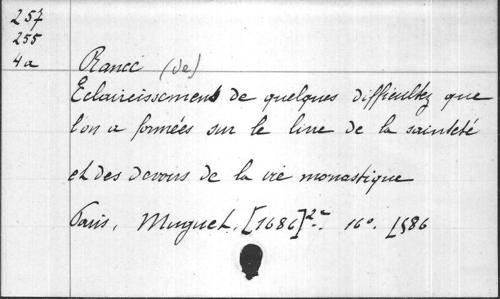 257
255
4a
Rancé (de)
Eclaircissements de quelques difficultez que
l'on a formées sur le livre de la sainteté
et des devoirs de la vie monastique
Paris, Muguet, [1686] 2e. 16o.